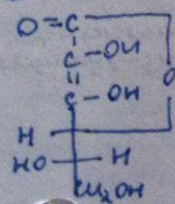 O=C
C-OH
||
O
C-OH
H
HO H
CH2OH